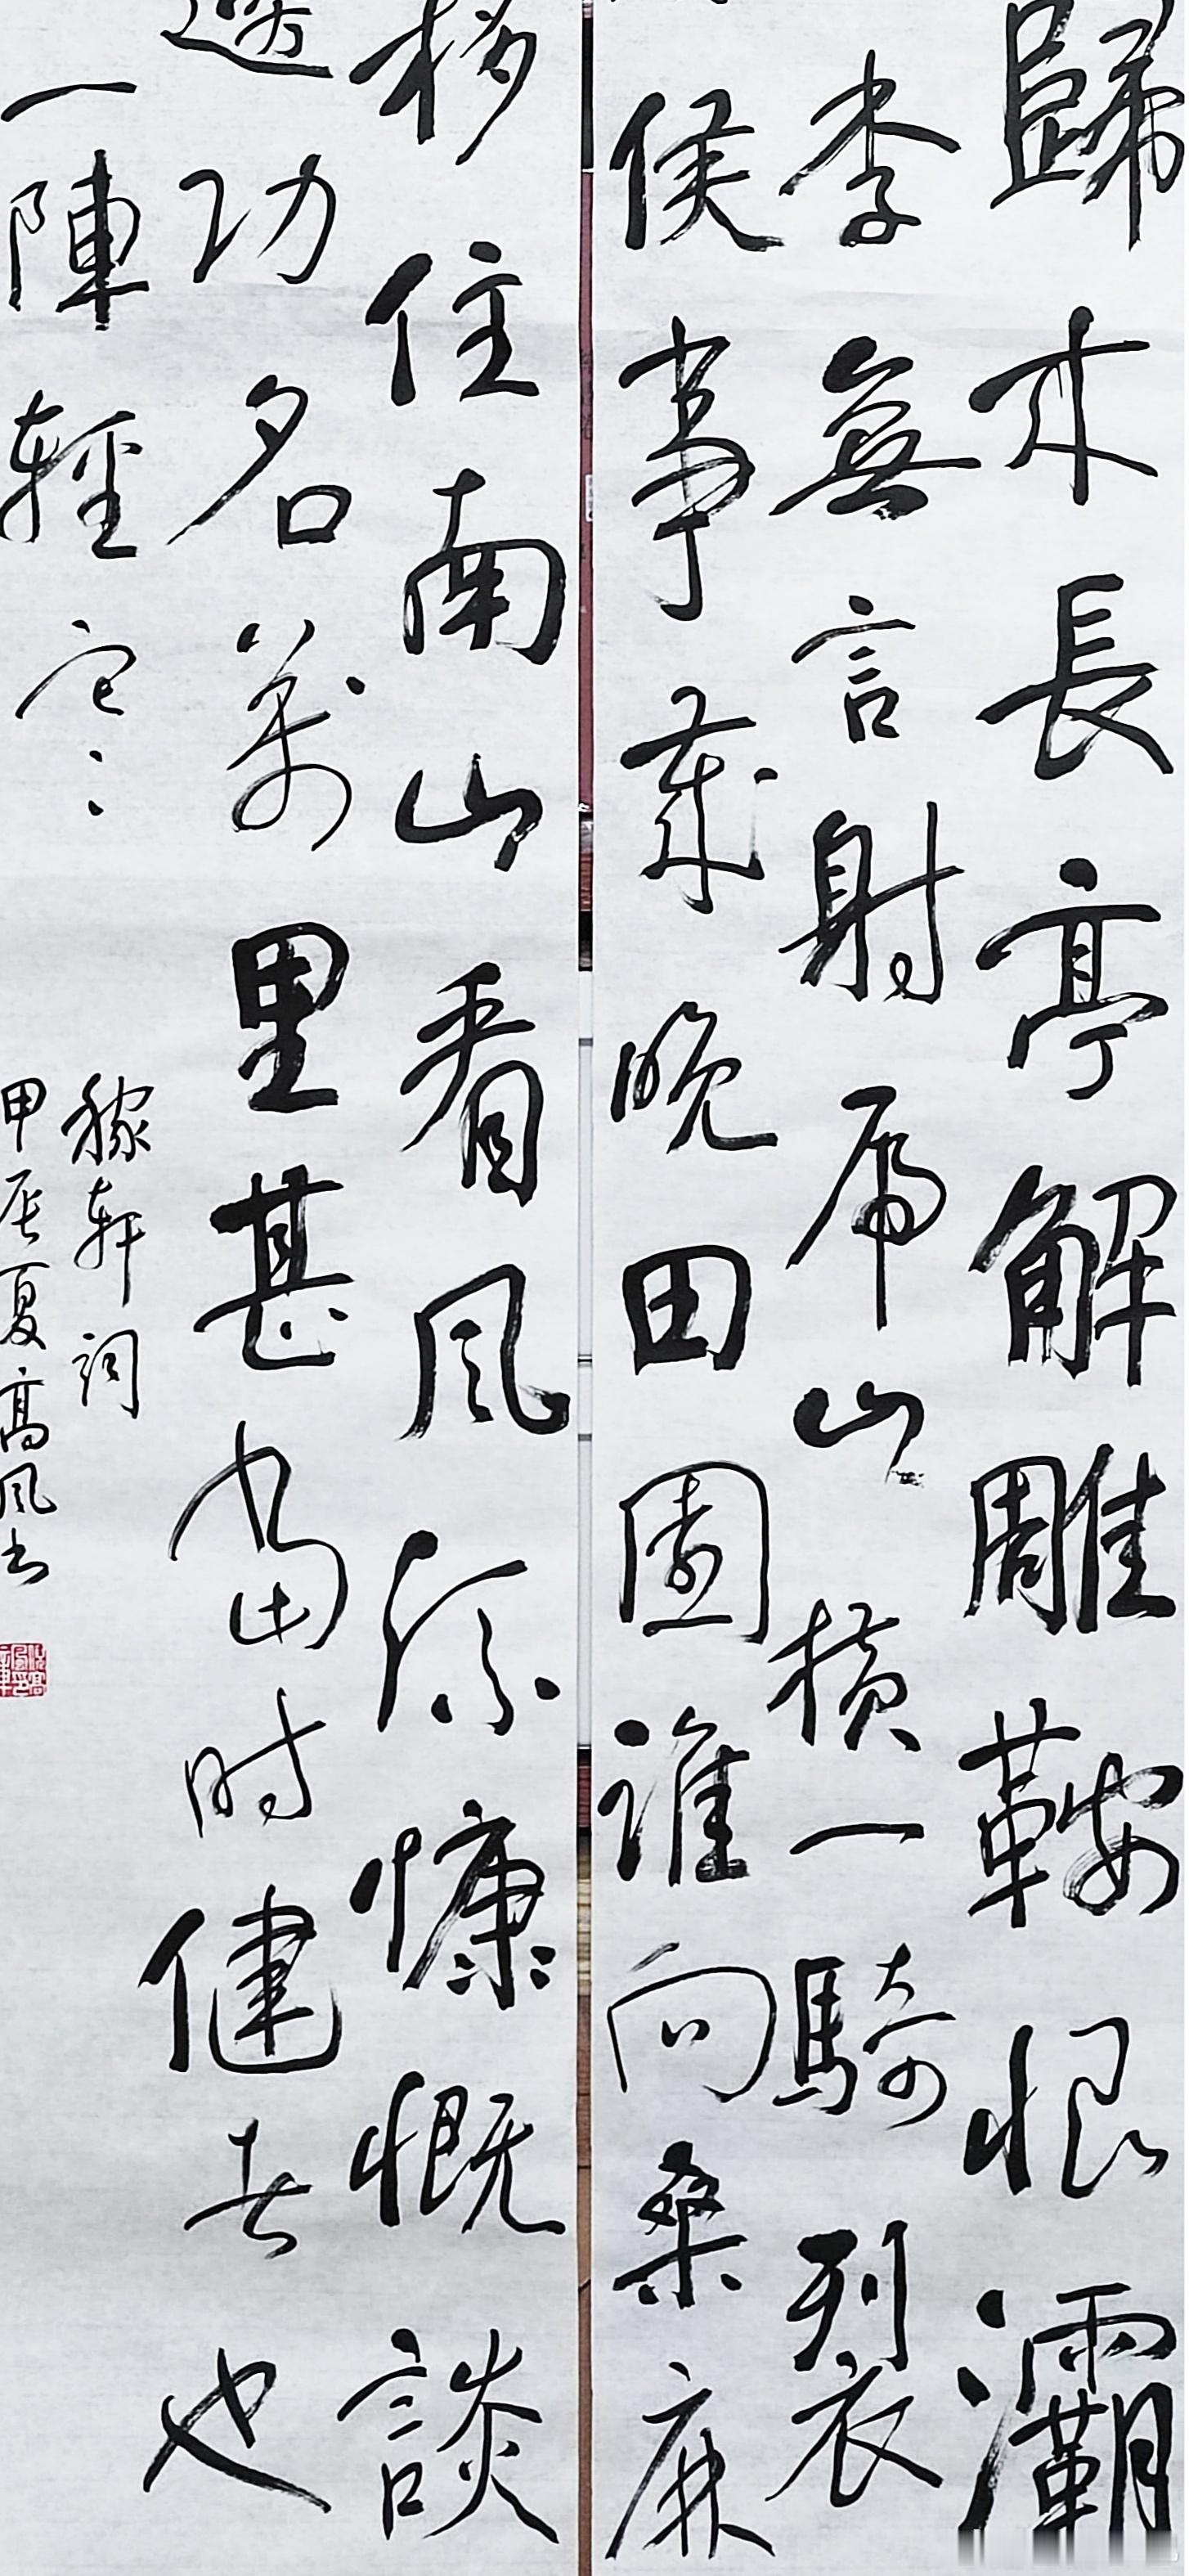 歸來長亭解雕鞍恨灞
李無言射虎山橫一騎裂
侯事歲晚田園誰向桑麻
移住南山看風流慷慨談
邊功名萬里甚當时健者也
一陣輕寒
稼軒詞
甲辰夏高風书